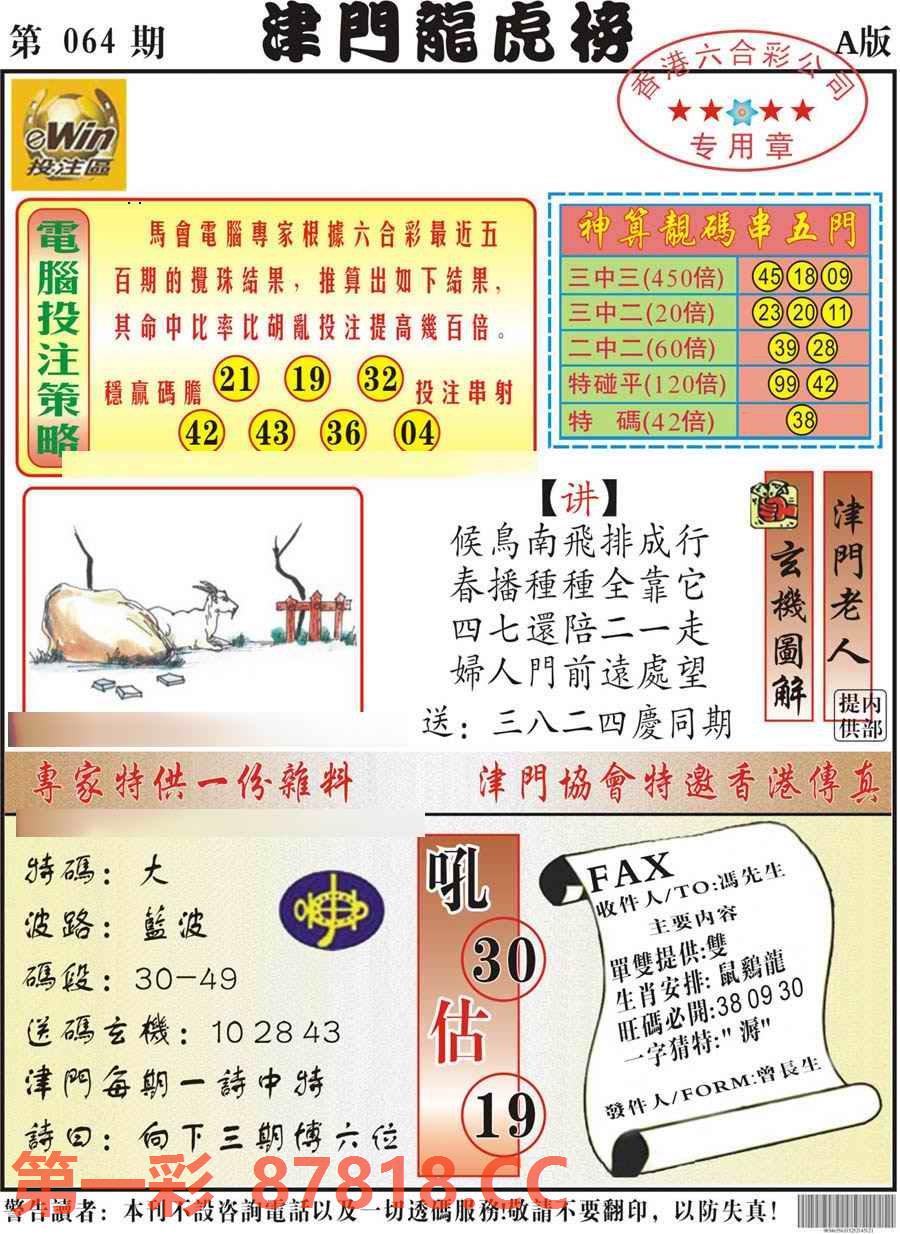 第 064 期
津門龍虎榜
A版
香港六合彩公司
专用章
eWin
投注區
電腦投注策略
馬會電腦專家根據六合彩最近五
百期的攪珠結果，推算出如下結果，
其命中比率比胡亂投注提高幾百倍。
穩贏碼膽 21 19 32 投注串射
42 43 36 04
神算靚碼串五門
三中三(450倍) 45 18 09
三中二(20倍) 23 20 11
二中二(60倍) 39 28
特碰平(120倍) 99 42
特 碼(42倍) 38
【讲】
候鳥南飛排成行
春播種種全靠它
四七還陪二一走
婦人門前遠處望
送：三八二四慶同期
玄機圖解
津門老人
内部提供
專家特供一份雜料
津門協會特邀香港傳真
特碼：大
波路：藍波
碼段：30－49
送碼玄機：10 28 43
津門每期一詩中特
詩曰：向下三期博六位
吼
30
估
19
FAX
收件人/TO:馮先生
主要内容
單雙提供:雙
生肖安排: 鼠鷄龍
旺碼必開:38 09 30
一字猜特:" 潺"
發件人/FORM:曾長生
第一彩 87818.CC
警告讀者：本刊不設咨詢電話以及一切透碼服務!敬請不要翻印，以防失真！